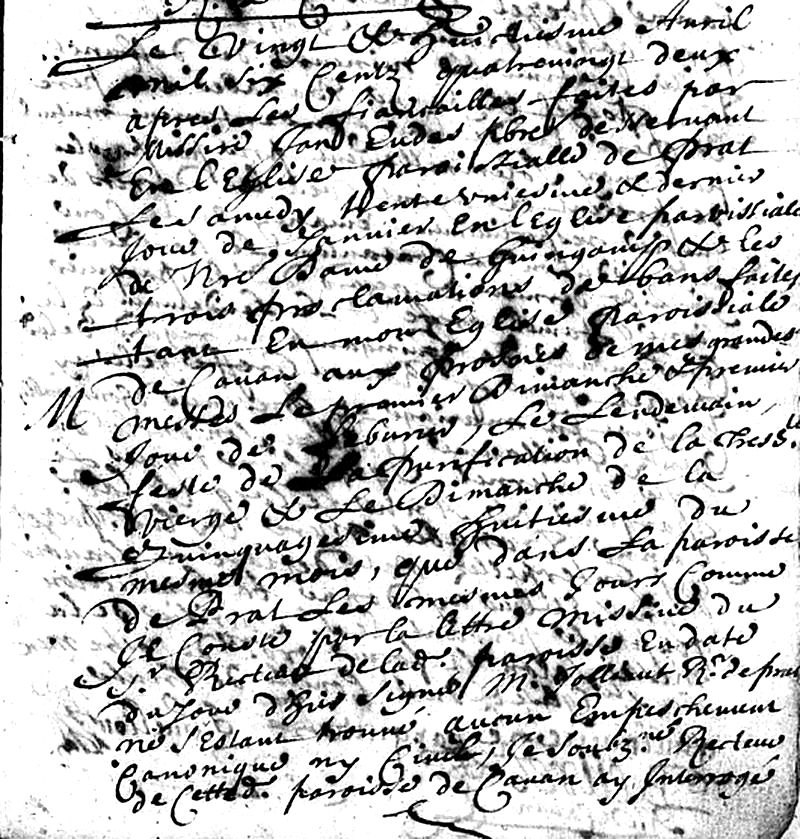 Le Vingt & huictiesme Avril
mil six Centz quatrevingt deux
apres Les fiancailles faites par
Missire Jan Eudes pbre deservant
En l'Eglise paroissialle de Prat
Le samedy trente uniesme & dernier
Jour de Janvier En l'Eglise paroissiale
de Nre Dame de Guingamp & les
trois proclamations de bans faites
tant En mon Eglise paroissiale
de Cavan aux prosnes de mes grandes
M messes Le premier Dimanche & premier
Jour de feburier, Le Lendemain,
feste de La Purification de la Thess.
Vierge & Le Dimanche de la
Quinquagesime huitiesme du
mesme mois, que dans La paroisse
de Prat Les mesmes Jours Comme
Il Conste par la lettre Missive du
Sr Recteur de lad. paroisse En date
du Jour d'hier Signé M. Jollant Rr. de prat
ne s'Estant trouvé aucun Empeschement
Canonique ny Civil, Je soubzné Recteur
de Cetted. paroisse de Cavan ay Interrogé